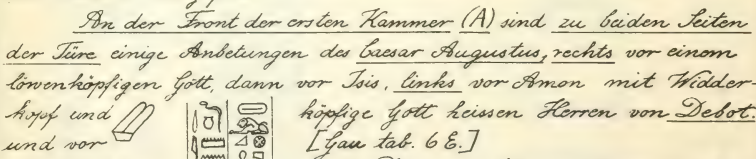 An der Front der ersten Kammer (A) sind zu beiden Seiten
der Türe einige Anbetungen des Caesar Augustus, rechts vor einem
löwenköpfigen Gott, dann vor Isis, links vor Amon mit Widder-
kopf und köpfige Gott heissen Herren von Debot.
und vor [Gau tab. 6 E.]